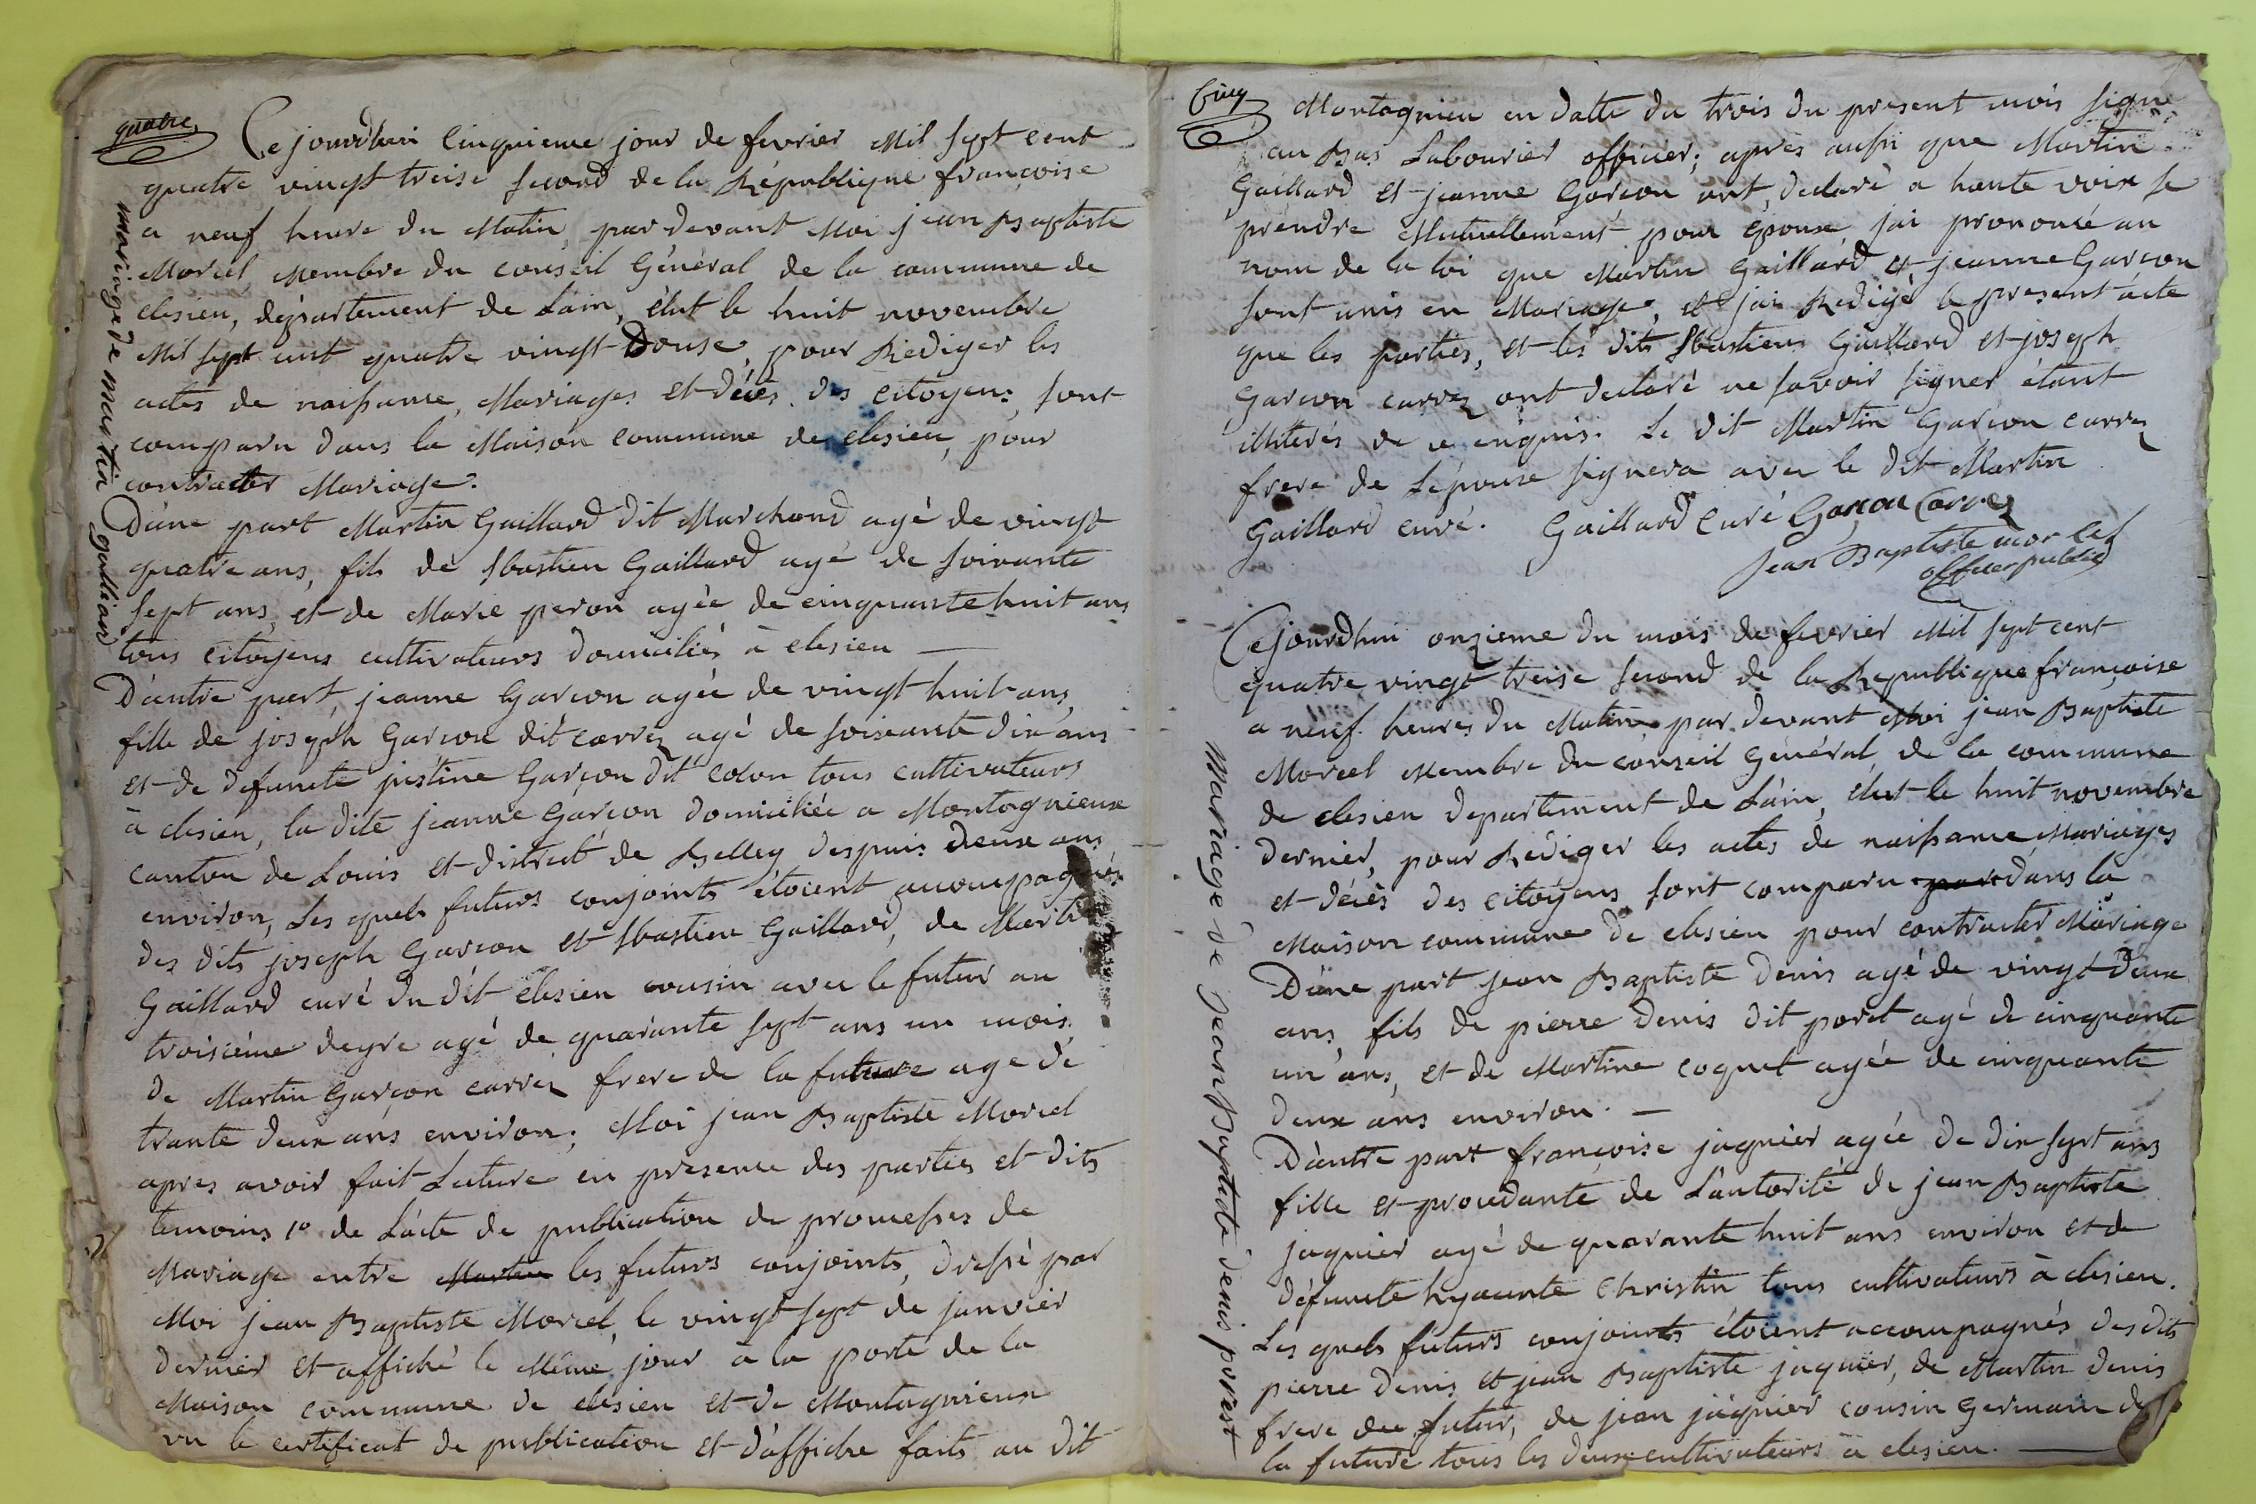 quatre
Cejourdhui Cinquieme jour de fevrier Mil sept cent
quatre vingt treise second de la République françoise
a neuf heure du Matin, par devant Moi jean Baptiste
Morcel, Membre du conseil Général de la commune de
clesieu, département de Lain, élut le huit novembre
Mil sept cent quatre vingt Douse, pour Rediger les
actes de naissance, Mariages et décès des Citoyens, sont
comparu dans la Maison commune de clesieu, pour
contracter Mariage.
D'une part Martin Gaillard dit Marchand agé de vingt
quatre ans, fils de Sbastien Gaillard agé de soixante
sept ans, et de Marie peron agée de cinquante huit ans
tous citoyens cultivateurs domiciliés à clesieu —
D'autre part, jeanne Garcon agée de vingt huit ans,
fille de joseph Garcon dit carrez agé de soixante dix ans
et de defuncte justine Garçon dit colon tous cultivateurs
à clesieu, la dite jeanne Garcon domiciliée a Montagnieux
canton de Louis et district de Belley despuis deux ans
environ, Les quels futurs conjoints étoient accompagnés
des dits joseph Garcon et Sbastien Gaillard, de Martin
Gaillard curé du dit clesieu cousin avec le futur au
troisième degre agé de quarante sept ans un mois.
de Martin Garçon carrez frere de la future age de
trante deux ans environ; Moi jean Baptiste Morcel
apres avoir fait Lecture en presence des parties et dits
temoins 1º de L'acte de publication de promesses de
Mariage entre Martin les futurs conjoints, dressé par
Moi jean Baptiste Morcel, le vingt sept de janvier
dernier et affiché le Même jour à la porte de la
Maison commune de clesieu et de Montagnieux
vu le certificat de publication et d'affiche faits au dit
mariage de martin gallian
Cinq
Montagnieu en datte du trois du present mois signé
au Bas Labourier officier; après aussi que Martin
Gaillard et jeanne Garcon ont declaré a haute voix se
prendre Mutuellement pour époux, jai prononcé au
nom de la loi que Martin Gaillard et jeanne Garcon
sont unis en Mariage, et jai Redigé le present acte
que les parties, et les dits Sbastien Gaillard et joseph
Garcon carrez ont declaré ne savoir signer étant
illiterés de ce enquis. Le dit Martin Garcon carrez
frere de L'épouse signera avec le dit Martin
Gaillard curé. Gaillard Curé Garçon Carrez
Jean Baptiste morcel
officier public
Cejourdhui onzieme du mois de fevrier Mil sept cent
quatre vingt treise second de la Republique françoise
a neuf heures du Matin par devant Moi jean Baptiste
Morcel Membre du conseil Général de la commune
de clesieu departement de Lain, élut le huit novembre
dernier, pour Rédiger les actes de naissance, Mariages
et décès des citoyens sont comparu par dans la
Maison commune de clesieu pour contracter Mariage
D'une part jean Baptiste Denis agé de vingt deux
ans, fils de pierre Denis dit poret agé de cinquante
un ans, et de Martine coquet agée de cinquante
deux ans environ. —
D'autre part françoise juquier agée de dix sept ans
fille et procedante de L'autorité de jean Baptiste
juquier agé de quarante huit ans environ et de
défuncte hyacinte Christin tous cultivateurs à clesieu.
Les quels futurs conjoints étoient accompagnés des dits
pierre Denis et jean Baptiste juquier, de Martin Denis
frere du futur, de jean juquier cousin Germain de
la future tous les deux cultivateurs à clesieu. —
mariage de jean Baptiste denis poret